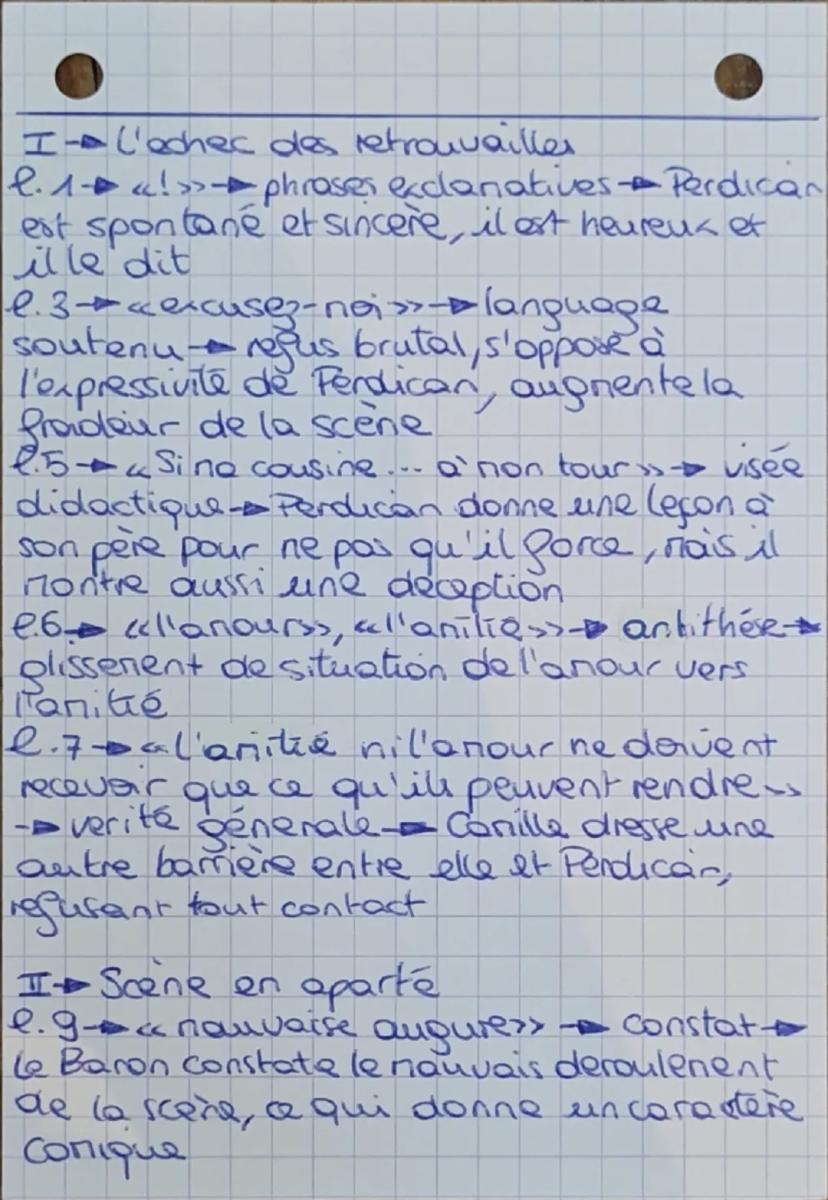 I → L'echec des retrouvailles
l.1 → «!» → phrases exclamatives → Perdican
est spontané et sincère, il est heureux et
il le dit
l.3 → «excusez-moi» → language
soutenu → refus brutal, s'oppose à
l'expressivité de Perdican, augmente la
froideur de la scène
l.5 → «Si ma cousine... à mon tour» → visée
didactique → Perdican donne une leçon à
son père pour ne pas qu'il force, mais il
montre aussi une deception
l.6 → «l'amour», «l'amitié» → antithése →
glissement de situation de l'amour vers
l'amitié
l.7 → «L'amitié ni l'amour ne doivent
recevoir que ce qu'ils peuvent rendre»
→ verité génerale → Camille dresse une
autre barrière entre elle et Perdican,
refusant tout contact
II → Scène en aparté
l.9 → «mauvaise augure» → constat →
le Baron constate le mauvais deroulement
de la scène, ce qui donne un caractère
comique